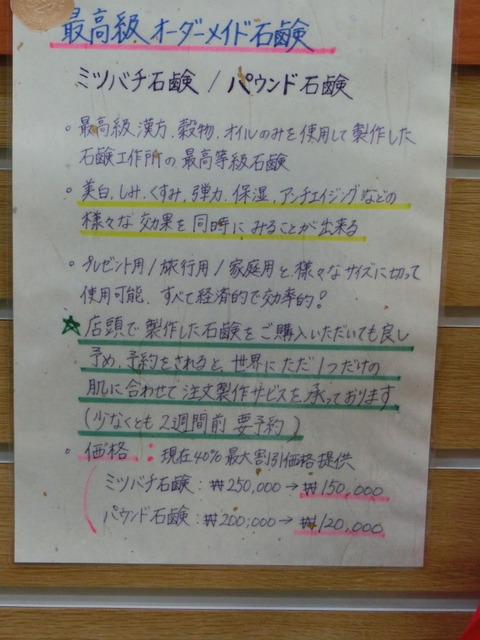 最高級 オーダーメイド石鹸
ミツバチ石鹸 / パウンド石鹸
。最高級漢方、穀物、オイルのみを使用して製作した
石鹸工作所の最高等級石鹸
。美白、しみ、くすみ、弾力、保湿、アンチエイジングなどの
様々な効果を同時にみることが出来る
。プレゼント用/旅行用/家庭用と、様々なサイズに切って
使用可能、すべて経済的で効率的!
☆店頭で製作した石鹸をご購入いただいても良し
予め、予約をされると、世界にただ1つだけの
肌に合わせて注文製作サービスを承っております
(少なくとも2週間前 要予約)
。価格：現在40%最大割引価格提供
ミツバチ石鹸：₩250,000→₩150,000
パウンド石鹸：₩200,000→₩120,000